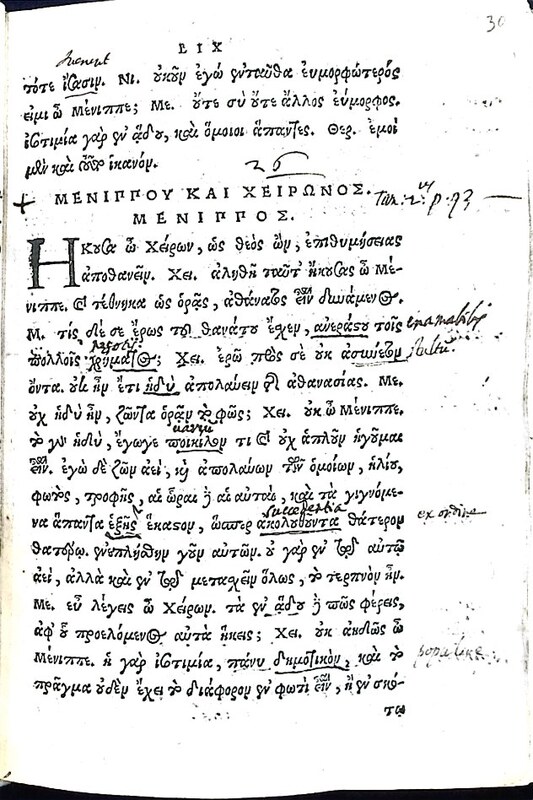 30
Ε Ι Χ
τότε ἴσασιν. Νι. οὐκοῦν ἐγὼ ἐνταῦθα εὐμορφώτερός
εἰμι ὦ Μένιππε; Με. οὔτε σὺ οὔτε ἄλλος εὔμορφος.
ἰσοτιμία γὰρ ἐν ᾅδου, καὶ ὅμοιοι ἅπαντες. Θερ. ἐμοὶ
μὲν καὶ τοῦτο ἱκανόν.
26
ΜΕΝΙΠΠΟΥ ΚΑΙ ΧΕΙΡΩΝΟΣ.
ΜΕΝΙΠΠΟΣ.
ΗΚουσα ὦ Χείρων, ὡς θεὸς ὢν, ἐπιθυμήσειας
ἀποθανεῖν. Χει. ἀληθῆ ταῦτ' ἤκουσας ὦ Μέ-
νιππε. καὶ τέθνηκα ὡς ὁρᾷς, ἀθάνατος εἶναι δυνάμενος.
Μ. τίς δαί σε ἔρως τοῦ θανάτου ἔσχεν, ἀνεράστου τοῖς
πολλοῖς χρήματος; Χει. ἐρῶ πρὸς σὲ οὐκ ἀσύνετον
ὄντα. οὐκ ἦν ἔτι ἡδὺ ἀπολαύειν τῆς ἀθανασίας. Με.
οὐχ ἡδὺ ἦν, ζῶντα ὁρᾶν τὸ φῶς; Χει. οὐκ ὦ Μένιππε.
τὸ γὰρ ἡδὺ, ἔγωγε ποικίλον τι καὶ οὐχ ἁπλοῦν ἡγοῦμαι
εἶναι. ἐγὼ δὲ ζῶν ἀεὶ, καὶ ἀπολαύων τῶν ὁμοίων, ἡλίου,
φωτὸς, τροφῆς, αἱ ὧραι δὲ αἱ αὐταὶ, καὶ τὰ γιγνόμε-
να ἅπαντα ἑξῆς ἕκαστον, ὥσπερ ἀκολουθοῦντα θάτερον
ex ordine
θατέρῳ. ἐνεπλήσθην γοῦν αὐτῶν. οὐ γὰρ ἐν τῷ αὐτῷ
ἀεὶ, ἀλλὰ καὶ ἐν τῷ μετασχεῖν ὅλως, τὸ τερπνὸν ἦν.
Με. εὖ λέγεις ὦ Χείρων. τὰ ἐν ᾅδου δὲ πῶς φέρεις,
ἀφ' οὗ προελόμενος αὐτὰ ἥκεις; Χει. οὐκ ἀηδῶς ὦ
Μένιππε. ἡ γὰρ ἰσοτιμία, πάνυ δημοτικὸν, καὶ τὸ
populare
πρᾶγμα οὐδὲν ἔχει τὸ διάφορον ἐν φωτὶ εἶναι, ἢ ἐν σκό-
τῳ